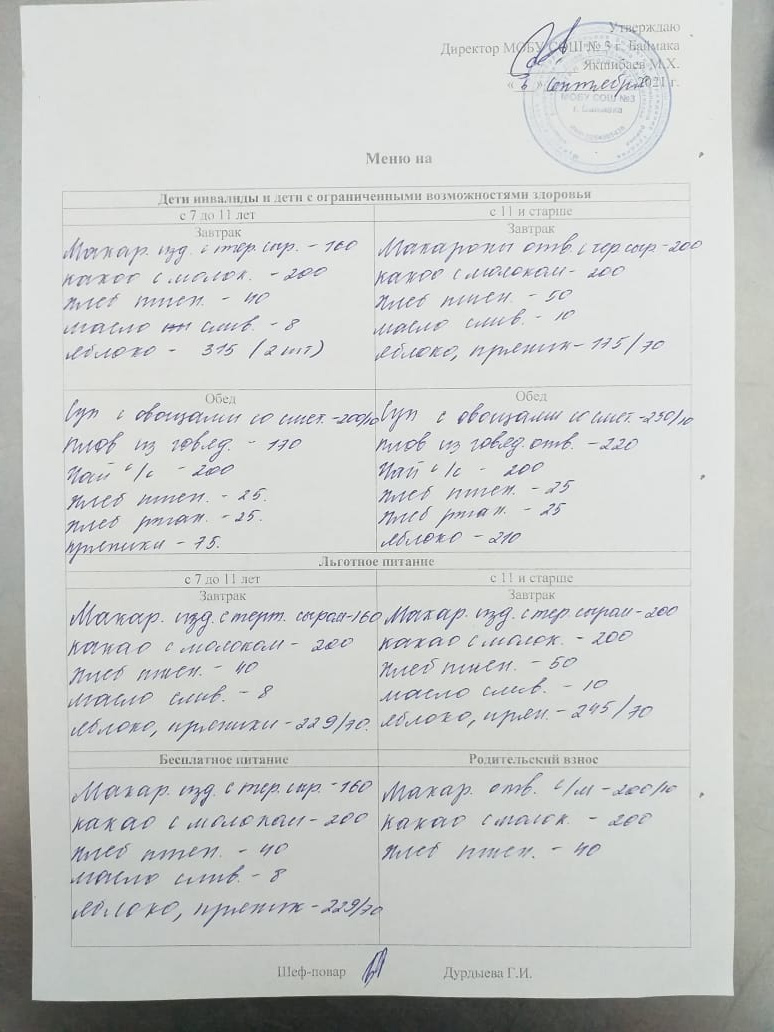 Утверждаю
Директор МОБУ СОШ № 3 г. Баймака
Якшибаев М.Х.
« » сентября 2021 г.
МОБУ СОШ №3
г. Баймака
Меню на
Дети инвалиды и дети с ограниченными возможностями здоровья
с 7 до 11 лет
с 11 и старше
Завтрак
Макар. изд. с тер. сыр. - 160
какао с молок. - 200
Хлеб пшен. - 40
масло слив. - 8
яблоко - 315 (2 шт)
Завтрак
Макароны отв. с тер сыр. - 200
какао с молоком - 200
Хлеб пшен. - 50
масло слив. - 10
яблоко, пряник - 175/70
Обед
Суп с овощами со смет. - 200/10
плов из говяд. - 170
Чай с/с - 200
Хлеб пшен. - 25.
Хлеб ржан. - 25.
пряники - 75.
Обед
Суп с овощами со смет. - 250/10
плов из говяд. отв. - 220
Чай с/с - 200
Хлеб пшен. - 25
Хлеб ржан. - 25
яблоко - 210
Льготное питание
с 7 до 11 лет
с 11 и старше
Завтрак
Макар. изд. с терт. сыром - 160
какао с молоком - 200
Хлеб пшен. - 40
масло слив. - 8
яблоко, пряники - 229/70.
Завтрак
Макар. изд. с тер. сыром - 200
какао с молок. - 200
Хлеб пшен. - 50
масло слив. - 10
яблоко, прян. - 245/70
Бесплатное питание
Макар. изд. с тер. сыр. - 160
какао с молоком - 200
Хлеб пшен. - 40
масло слив. - 8
яблоко, пряник - 229/70
Родительский взнос
Макар. отв. с/м - 200/10
какао с молок. - 200
Хлеб пшен. - 40
Шеф-повар Дурдыева Г.И.